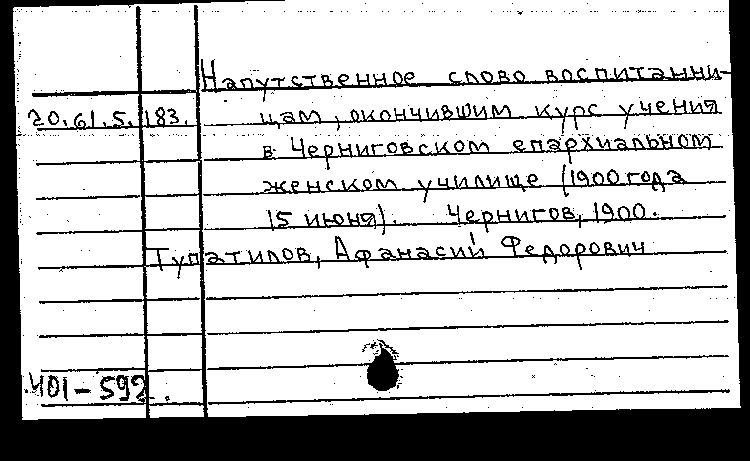 Напутственное слово воспитанни-
20.61.5.183. цам, окончившим курс учения
в Черниговском епархиальном
женском училище (1900 года
15 июня). Чернигов, 1900.
Тупатилов, Афанасий Федорович
401-592.